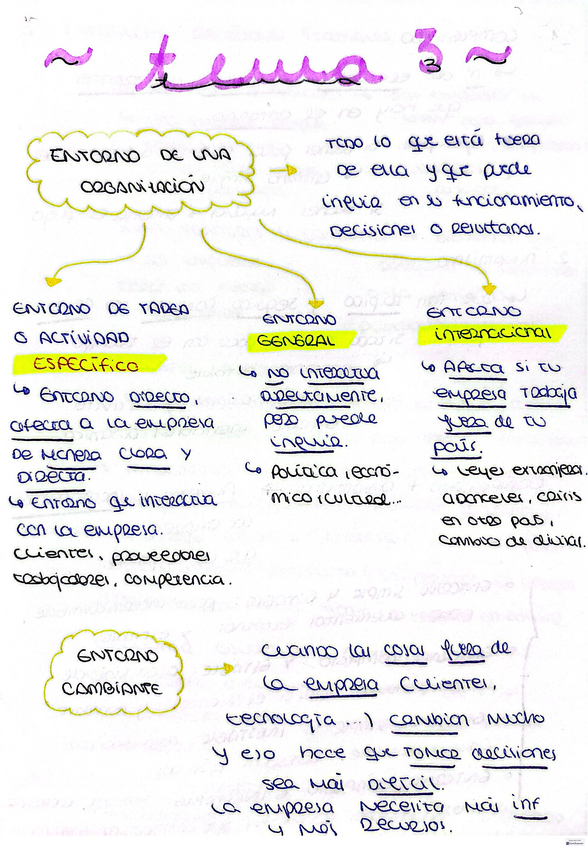 ~ tema 3 ~
ENTORNO DE UNA
ORGANIZACIÓN
TODO LO que está fuera
DE ella y que puede
influir en su funcionamiento,
decisiones o resultados.
ENTORNO DE TAREA
O ACTIVIDAD
ESPECÍFICO
↳ ENTORNO DIRECTO,
afecta a la empresa
DE MANERA CLARA Y
DIRECTA.
↳ ENTORNO que interactua
con la empresa.
clientes, proveedores
trabajadores, competencia.
ENTORNO
GENERAL
↳ NO interactua
directamente,
pero puede
influir.
↳ Política, econó-
mico, cultural...
ENTORNO
INTERNACIONAL
↳ AFECTA si tu
empresa trabaja
fuera de tu
país.
↳ Leyes extranjeras,
aranceles, crisis
en otro país,
cambio de divisas.
ENTORNO
CAMBIANTE
cuando las cosas fuera de
la empresa (clientes,
tecnología...) cambian mucho
y eso hace que TOMAR decisiones
sea más difícil.
La empresa necesita más inf
y más recursos.